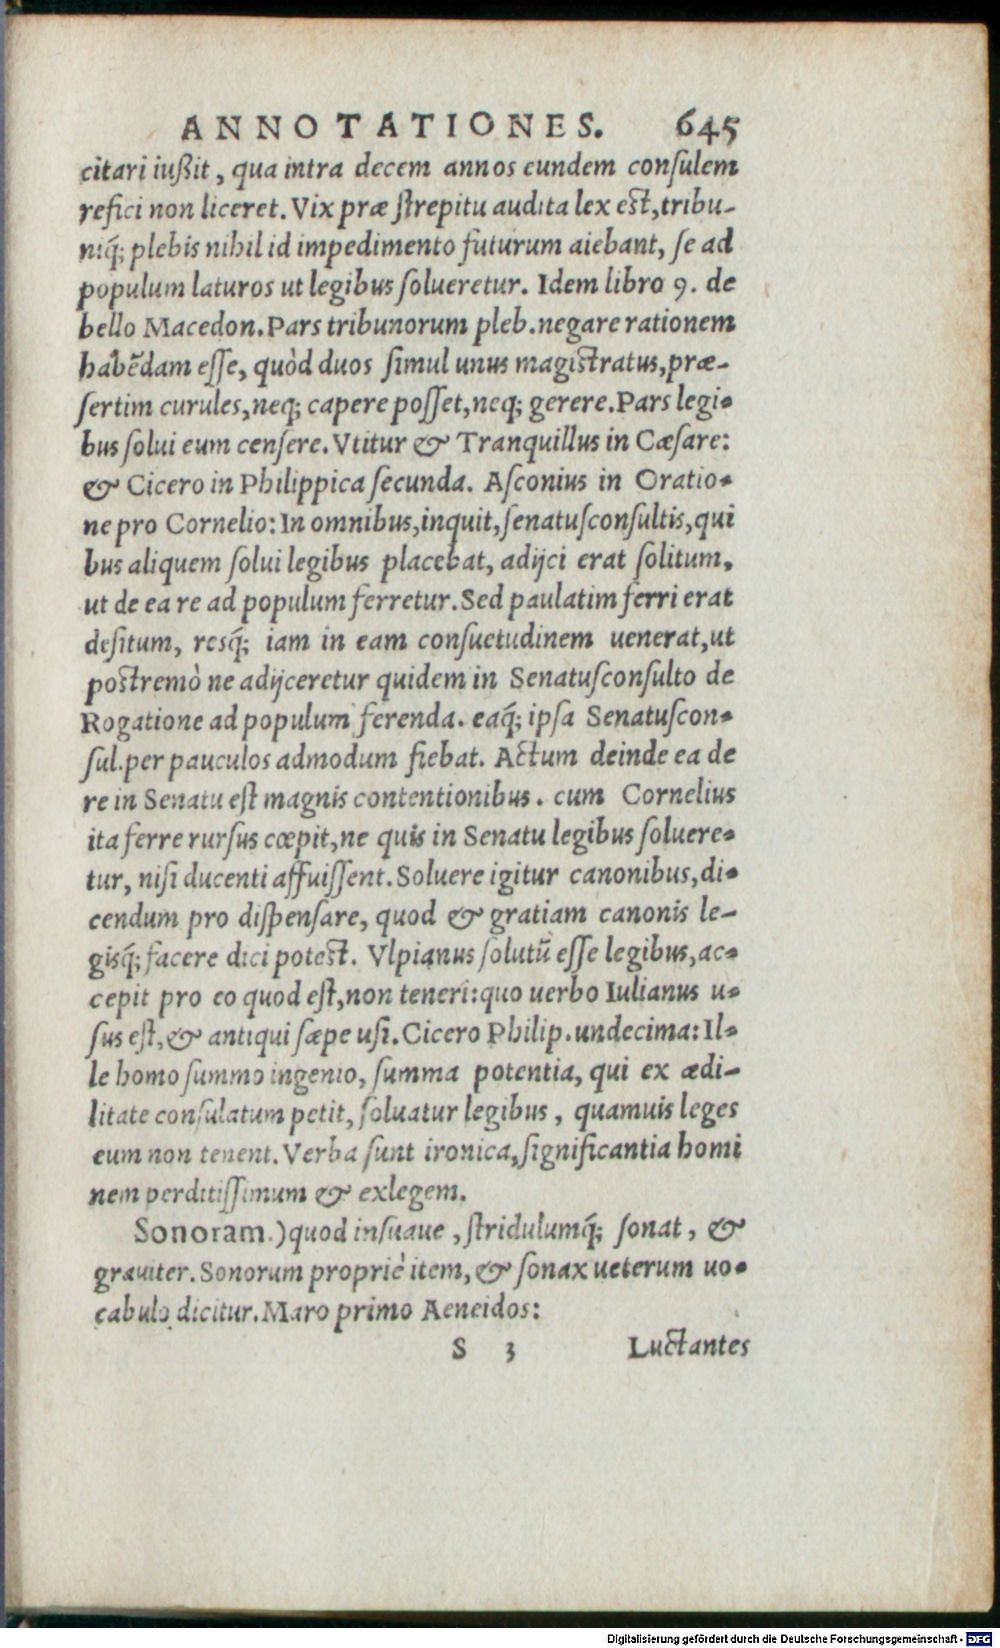 ANNOTATIONES. 645
citari iußit, qua intra decem annos eundem conſulem
refici non liceret. Vix præ ſtrepitu audita lex est, tribu-
niq́; plebis nihil id impedimento futurum aiebant, ſe ad
populum laturos ut legibus ſolueretur. Idem libro 9. de
bello Macedon. Pars tribunorum pleb. negare rationem
habẽdam eſſe, quòd duos ſimul unus magistratus, præ-
ſertim curules, neq; capere poſſet, neq; gerere. Pars legi-
bus ſolui eum cenſere. Vtitur & Tranquillus in Cæſare:
& Cicero in Philippica ſecunda. Aſconius in Oratio-
ne pro Cornelio: In omnibus, inquit, ſenatuſconſultis, qui
bus aliquem ſolui legibus placebat, adijci erat ſolitum,
ut de ea re ad populum ferretur. Sed paulatim ferri erat
deſitum, resq́; iam in eam conſuetudinem uenerat, ut
postremò ne adijceretur quidem in Senatuſconſulto de
Rogatione ad populum ferenda. eaq́; ipſa Senatuſcon-
ſul. per pauculos admodum fiebat. Actum deinde ea de
re in Senatu eſt magnis contentionibus. cum Cornelius
ita ferre rurſus cœpit, ne quis in Senatu legibus ſoluere-
tur, niſi ducenti affuiſſent. Soluere igitur canonibus, di-
cendum pro diſpenſare, quod & gratiam canonis le-
gisq́; facere dici potest. Vlpianus ſolutũ eſſe legibus, ac-
cepit pro eo quod eſt, non teneri: quo uerbo Iulianus u-
ſus eſt, & antiqui ſæpe uſi. Cicero Philip. undecima: Il-
le homo ſummo ingenio, ſumma potentia, qui ex ædi-
litate conſulatum petit, ſoluatur legibus, quamuis leges
eum non tenent. Verba ſunt ironica, ſignificantia homi
nem perditiſſimum & exlegem.
Sonoram.) quod inſuaue, ſtridulumq́; ſonat, &
grauiter. Sonorum propriè item, & ſonax ueterum uo-
cabulo dicitur. Maro primo Aeneidos:
S 3 Luctantes
Digitalisierung gefördert durch die Deutsche Forschungsgemeinschaft - DFG